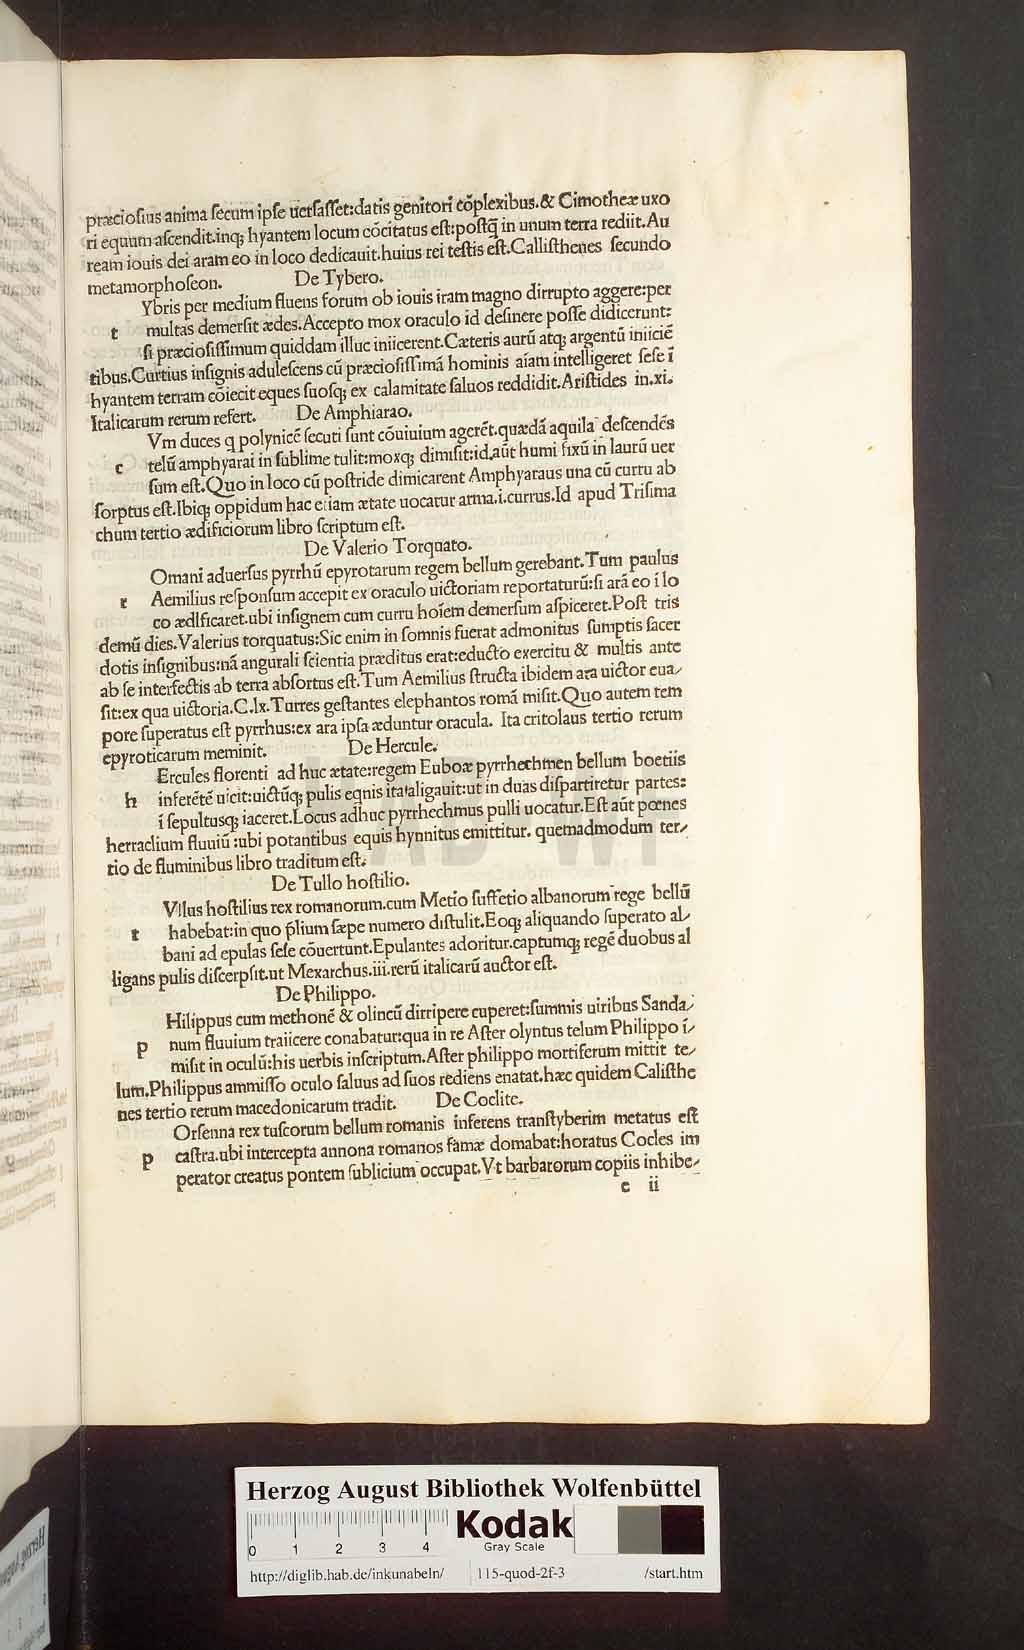 præciosius anima secum ipse uersasset:datis genitori cōplexibus.& Cimotheæ uxo
ri equum ascendit.inq; hyantem locum cōcitatus est:postq̄ in unum terra rediit.Au
ream iouis dei aram eo in loco dedicauit.huius rei testis est.Callisthenes secundo
metamorphoseon. De Tybero.
Ybris per medium fluens forum ob iouis iram magno dirrupto aggere:per
t multas demersit ædes.Accepto mox oraculo id desinere posse didicerunt:
si præciosissimum quiddam illuc iniicerent.Cæteris aurū atq; argentū iniiciē
tibus.Curtius insignis adulescens cū præciosissimā hominis aīam intelligeret sese ī
hyantem terram cōiecit eques suosq; ex calamitate saluos reddidit.Aristides in.xi.
Italicarum rerum refert. De Amphiarao.
Vm duces q polynicē secuti sunt cōuiuium agerēt.quædā aquila descendēs
c telū amphyarai in sublime tulit:moxq; dimisit:id.aūt humi fixū in laurū uer
sum est.Quo in loco cū postride dimicarent Amphyaraus una cū curru ab
sorptus est.Ibiq; oppidum hac etiam ætate uocatur arma.i.currus.Id apud Trisima
chum tertio ædificiorum libro scriptum est.
De Valerio Torquato.
Omani aduersus pyrrhū epyrotarum regem bellum gerebant.Tum paulus
r Aemilius responsum accepit ex oraculo uictoriam reportaturū:si arā eo ī lo
co ædlficaret.ubi insignem cum curru hoīem demersum aspiceret.Post tris
demū dies.Valerius torquatus:Sic enim in somnis fuerat admonitus sumptis sacer
dotis insignibus:nā angurali scientia præditus erat:educto exercitu & multis ante
ab se interfectis ab terra absortus est.Tum Aemilius structa ibidem ara uictor eua/
sit:ex qua uictoria.C.lx.Turres gestantes elephantos romā misit.Quo autem tem
pore superatus est pyrrhus:ex ara ipsa æduntur oracula. Ita critolaus tertio rerum
epyroticarum meminit. De Hercule.
Ercules florenti ad huc ætate:regem Euboæ pyrrhechmen bellum boetiis
h inferētē uicit:uictūq; pulis eqnis ita aligauit:ut in duas dispartiretur partes:
ī sepultusq; iaceret.Locus adhuc pyrrhechmus pulli uocatur.Est aūt pœnes
herraclium fluuiū :ubi potantibus equis hynnitus emittitur. quemadmodum ter/
tio de fluminibus libro traditum est.
De Tullo hostilio.
Vllus hostilius rex romanorum.cum Metio suffetio albanorum rege bellū
t habebat:in quo p̄lium sæpe numero distulit.Eoq; aliquando superato al/
bani ad epulas sese cōuertunt.Epulantes adoritur.captumq; regē duobus al
ligans pulis discerpsit.ut Mexarchus.iii.rerū italicarū auctor est.
De Philippo.
Hilippus cum methonē & olincū dirripere cuperet:summis uiribus Sanda/
p num fluuium traiicere conabatur:qua in re Aster olyntus telum Philippo ī/
misit in oculū:his uerbis inscriptum.Aster philippo mortiferum mittit te/
lum.Philippus ammisso oculo saluus ad suos rediens enatat.hæc quidem Calisthe
nes tertio rerum macedonicarum tradit. De Coclite.
Orsenna rex tuscorum bellum romanis inferens transtyberim metatus est
p castra.ubi intercepta annona romanos famæ domabat:horatus Cocles im
perator creatus pontem sublicium occupat.Vt barbarorum copiis inhibe/
c ii
HAB WF
Herzog August Bibliothek Wolfenbüttel
0 1 2 3 4 Kodak
Gray Scale
http://diglib.hab.de/inkunabeln/ 115-quod-2f-3 /start.htm